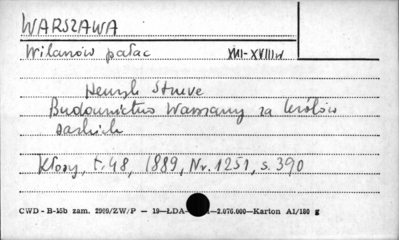 WARSZAWA
Wilanów pałac XVII-XVIII w
Henryk Struve
Budownictwo Warszawy za królów
saskich
Kłosy, t. 48, 1889, Nr. 1251, s. 390
CWD - B-15b zam. 2909/ZW/P — 19—ŁDA- —2.076.000—Karton A1/180 g